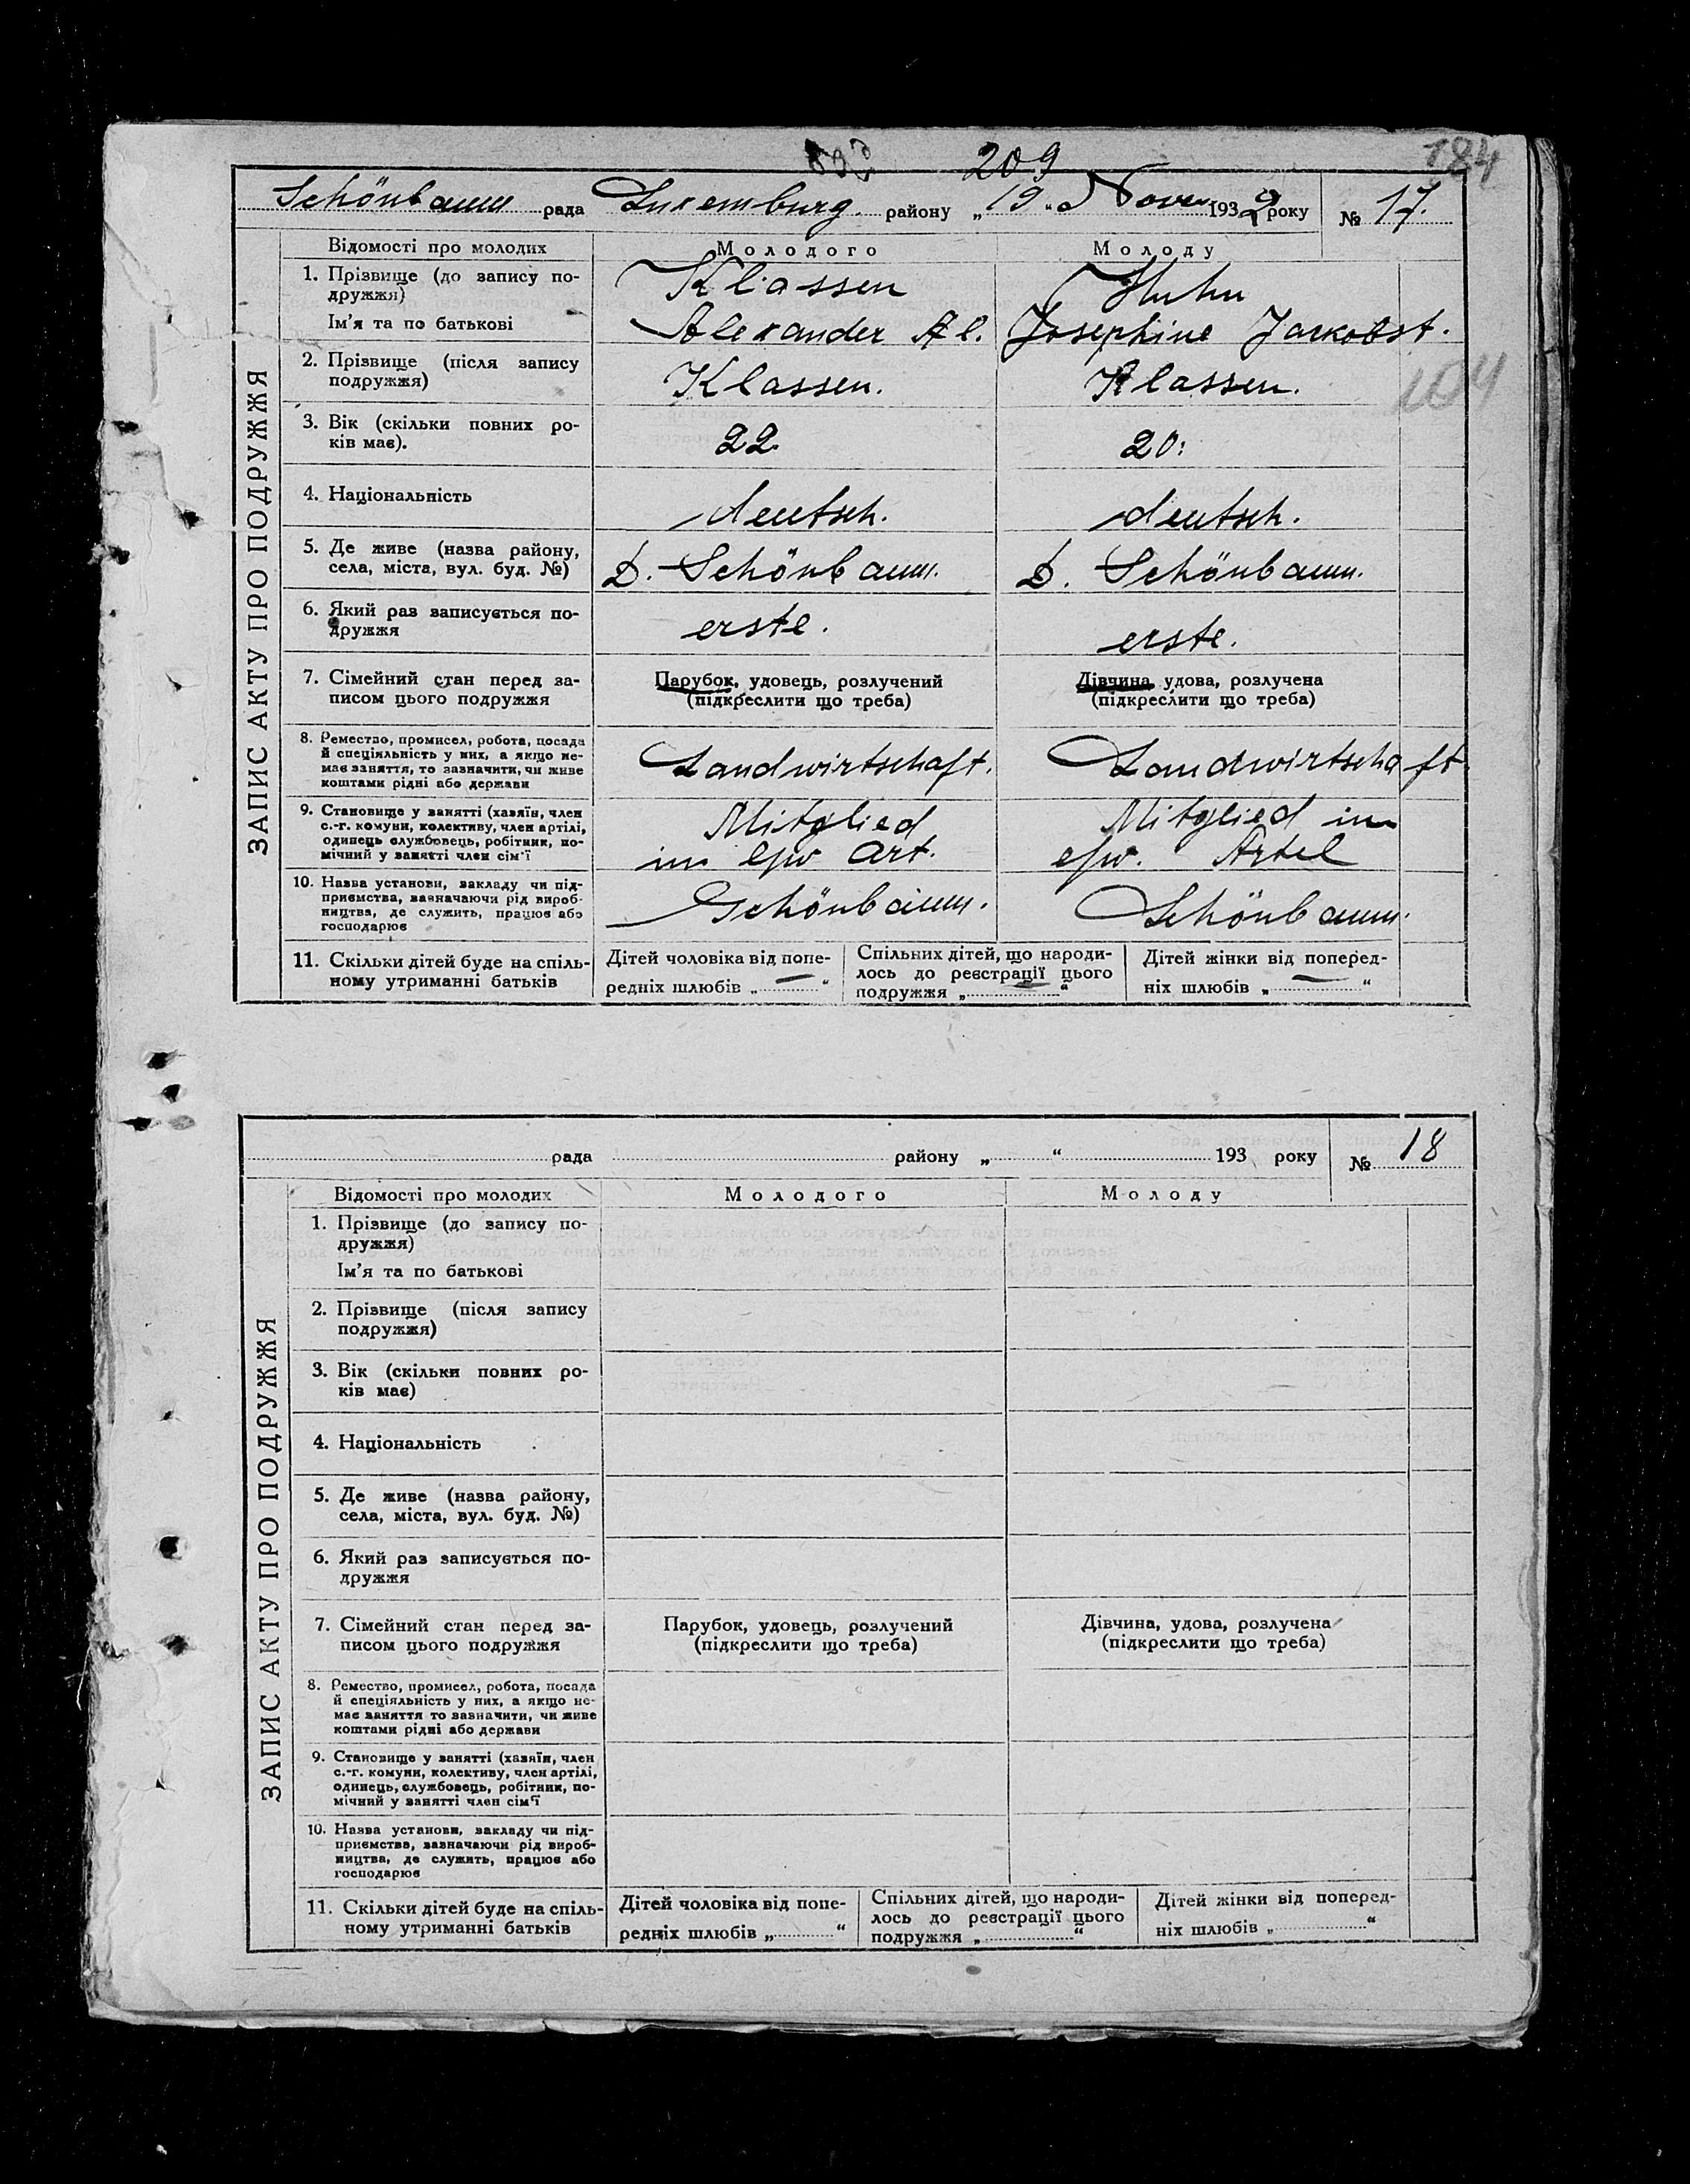 209
184
Schönbaum рада Luxemburg району „19“ Novem 1932 року № 17.
Відомості про молодих Молодого Молоду
ЗАПИС АКТУ ПРО ПОДРУЖЖЯ
1. Прізвище (до запису по-
дружжя)
Klassen Huhn
Ім'я та по батькові Alexander Al. Josephine Jarkobst.
2. Прізвище (після запису
подружжя)
Klassen. Klassen.
104
3. Вік (скільки повних ро-
ків має).
22 20.
4. Національність deutsch. deutsch.
5. Де живе (назва району,
села, міста, вул. буд. №)
D. Schönbaum. D. Schönbaum.
6. Який раз записується по-
дружжя
erste. erste.
7. Сімейний стан перед за-
писом цього подружжя
Парубок, удовець, розлучений
(підкреслити що треба)
Дівчина, удова, розлучена
(підкреслити що треба)
8. Ремество, промисел, робота, посада
й спеціяльність у них, а якщо не-
має заняття, то зазначити, чи живе
коштами рідні або держави
Landwirtschaft. Landwirtschaft.
9. Становище у занятті (хазяїн, член
с.-г. комуни, колективу, член артілі,
одинець службовець, робітник, по-
мічний у занятті член сім'ї
Mitglied
im Art.
Mitglied im
Artel
10. Назва установи, закладу чи під-
приємства, зазначаючи рід вироб-
ництва, де служить, працює або
господарює
Schönbaum. Schönbaum.
11. Скільки дітей буде на спіль-
ному утриманні батьків
Дітей чоловіка від попе-
редніх шлюбів „—“
Спільних дітей, що народи-
лось до реєстрації цього
подружжя „—“
Дітей жінки від поперед-
ніх шлюбів „—“
рада району „ “ 193 року № 18
Відомості про молодих Молодого Молоду
ЗАПИС АКТУ ПРО ПОДРУЖЖЯ
1. Прізвище (до запису по-
дружжя)
Ім'я та по батькові
2. Прізвище (після запису
подружжя)
3. Вік (скільки повних ро-
ків має)
4. Національність
5. Де живе (назва району,
села, міста, вул. буд. №)
6. Який раз записується по-
дружжя
7. Сімейний стан перед за-
писом цього подружжя
Парубок, удовець, розлучений
(підкреслити що треба)
Дівчина, удова, розлучена
(підкреслити що треба)
8. Ремество, промисел, робота, посада
й спеціяльність у них, а якщо не-
має заняття то зазначити, чи живе
коштами рідні або держави
9. Становище у занятті (хазяїн, член
с.-г. комуни, колективу, член артілі,
одинець, службовець, робітник, по-
мічний у занятті член сім'ї
10. Назва установи, закладу чи під-
приємства, зазначаючи рід вироб-
ництва, де служить, працює або
господарює
11. Скільки дітей буде на спіль-
ному утриманні батьків
Дітей чоловіка від попе-
редніх шлюбів „ “
Спільних дітей, що народи-
лось до реєстрації цього
подружжя „ “
Дітей жінки від поперед-
ніх шлюбів „ “